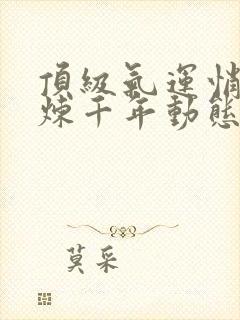 頂級氣運悄
煉千年動態
莫采